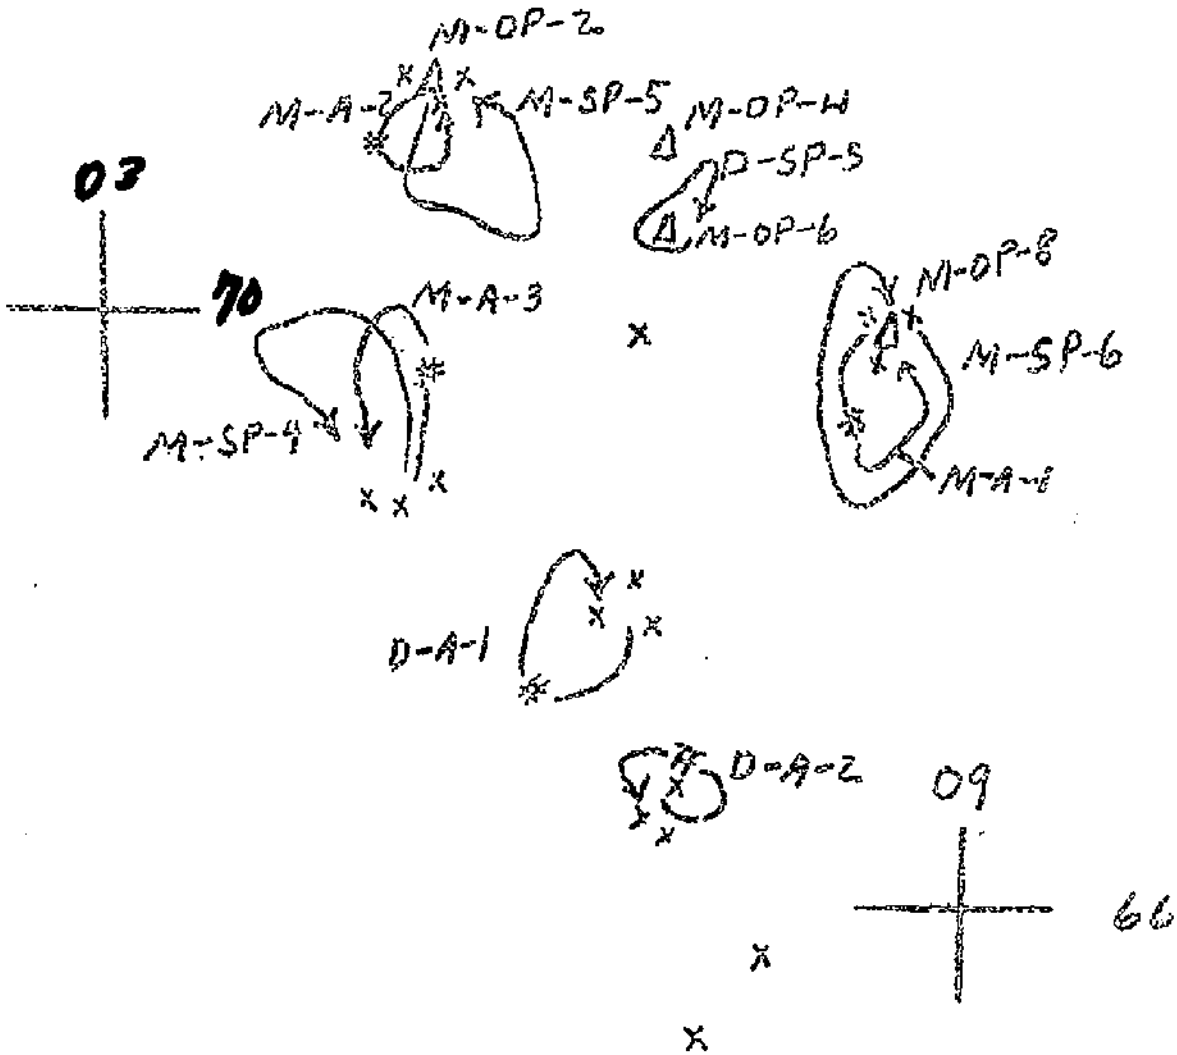 M-OP-2
M-A-2
M-SP-5
M-OP-4
D-SP-5
M-OP-6
03
70
M-A-3
M-OP-8
M-SP-6
M-SP-4
M-A-1
D-A-1
D-A-2
09
66